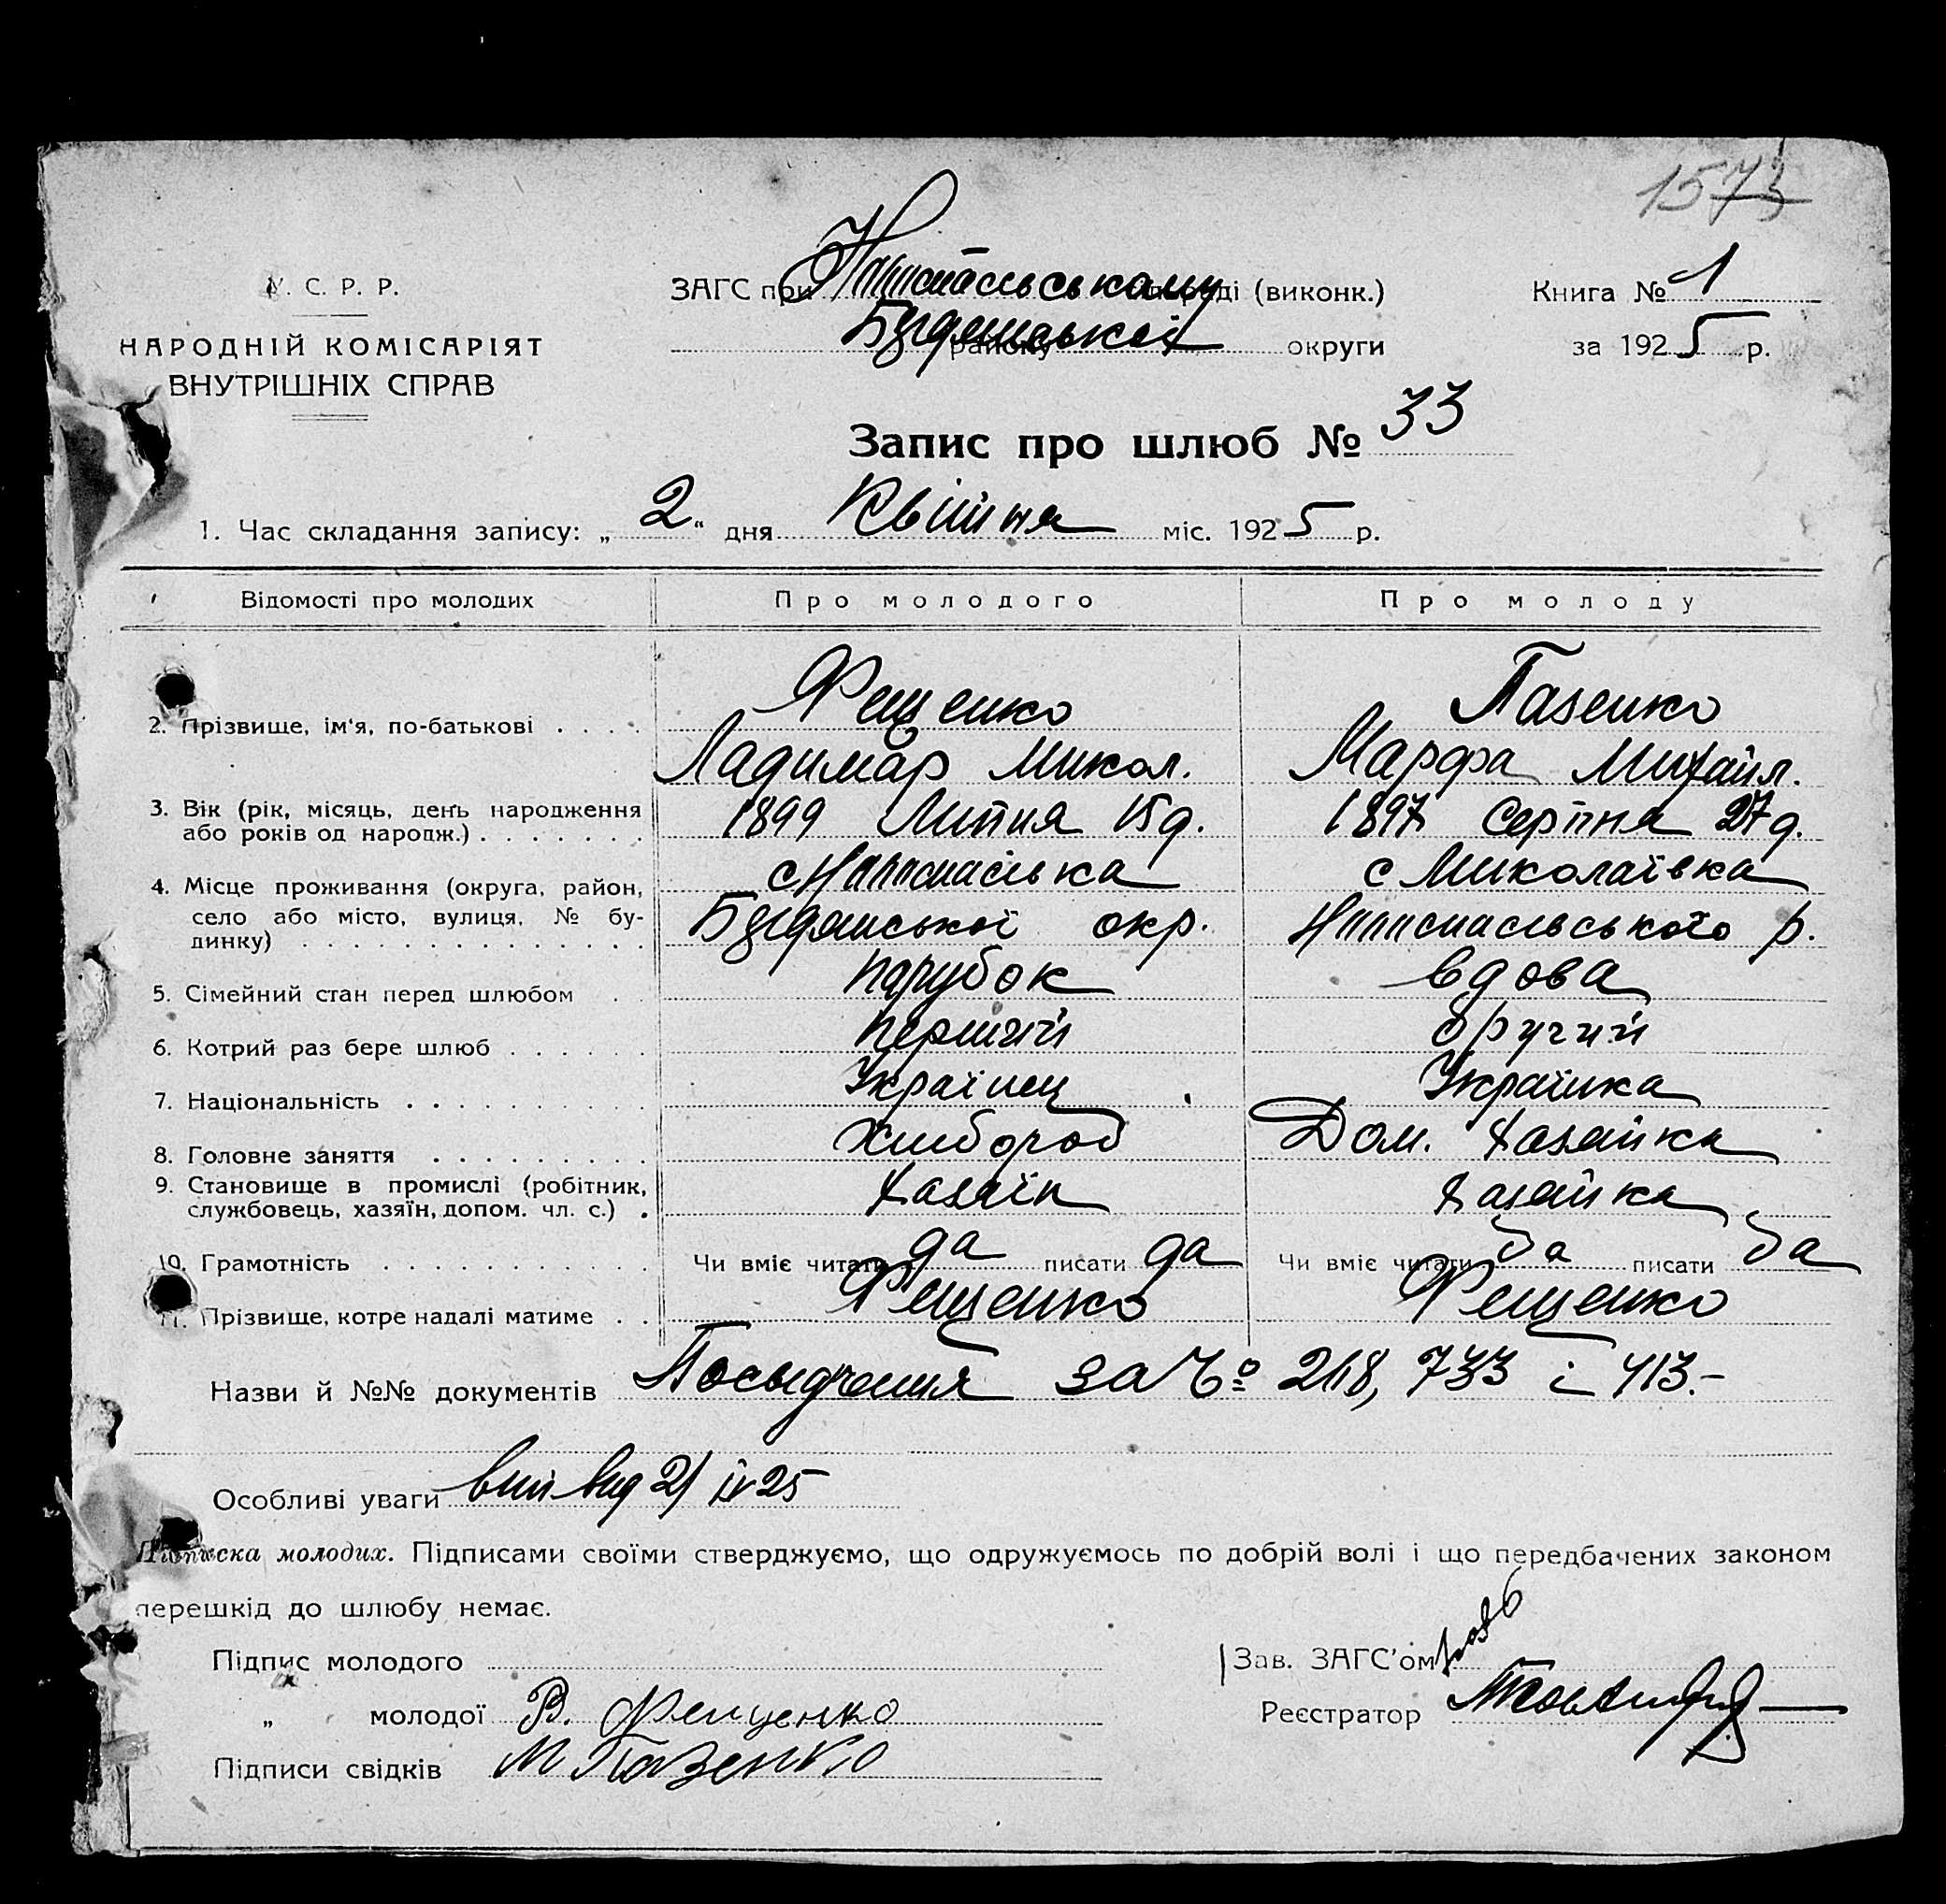 1573
У. С. Р. Р.
НАРОДНІЙ КОМІСАРІЯТ
ВНУТРІШНІХ СПРАВ
ЗАГС при (виконк.)
району округи
Книга № 1
за 1925 р.
Запис про шлюб № 33
1. Час складання запису: „2“ дня Квітня міс. 1925 р.
Відомості про молодих Про молодого Про молоду
2. Прізвище, ім'я, по-батькові . . . . Фещенко Пазенко
Ладимар Микол. Марфа Михайл.
3. Вік (рік, місяць, день народження або років од народж.) . . . . . . . 1899 Липня 15 д. 1897 Серпня 27 д.
4. Місце проживання (округа, район, село або місто, вулиця, № будинку) с Миколаївка
окр. р.
5. Сімейний стан перед шлюбом . . парубок вдова
6. Котрий раз бере шлюб . . . . . . перший другий
7. Національність . . . . . . . . . Українец Українка
8. Головне заняття . . . . . . . . . Хлибороб Дом. хазяйка
9. Становище в промислі (робітник, службовець, хазяїн, допом. чл. с.) . хазяїн хазяйка
10. Грамотність . . . . . . . . . . . Чи вміє читати да писати да Чи вміє читати да писати да
11. Прізвище, котре надалі матиме . . Фещенко Фещенко
Назви й №№ документів за № 218, 733 і 413.-
Особливі уваги 2/IV 25
Підписка молодих. Підписами своїми стверджуємо, що одружуємось по добрій волі і що передбачених законом
перешкід до шлюбу немає.
Підпис молодого
„ молодої В. Фещенко
Підписи свідків М Пазенко
Зав. ЗАГС'ом
Реєстратор